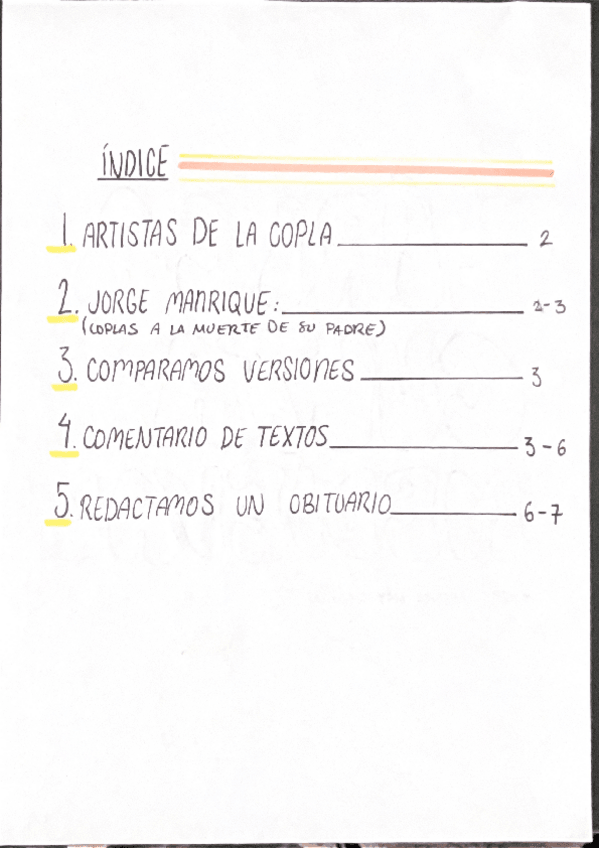 ÍNDICE
1. ARTISTAS DE LA COPLA 2
2. JORGE MANRIQUE: 2-3
(COPLAS A LA MUERTE DE SU PADRE)
3. COMPARAMOS VERSIONES 3
4. COMENTARIO DE TEXTOS 3-6
5. REDACTAMOS UN OBITUARIO 6-7